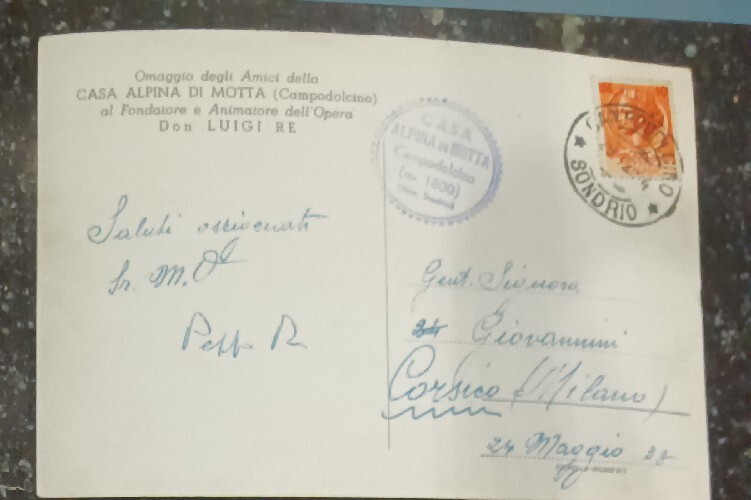 Omaggio degli Amici della
CASA ALPINA DI MOTTA (Campodolcino)
al Fondatore e Animatore dell'Opera
Don LUIGI RE
CASA
ALPINA DI MOTTA
Campodolcino
(m. 1800)
CAMPODOLCINO
* SONDRIO *
Saluti
Sr. M.
Peppo R
Gent. Signora
Giovannini
Corsico (Milano)
24 Maggio